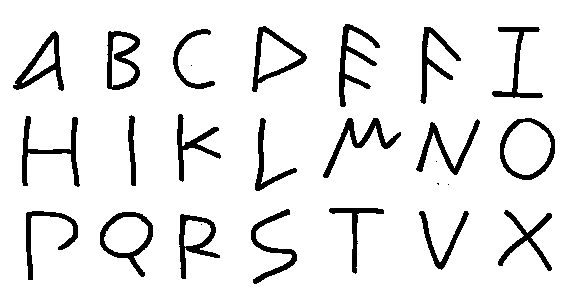 A B C D E F Z
H I K L M N O
P Q R S T V X